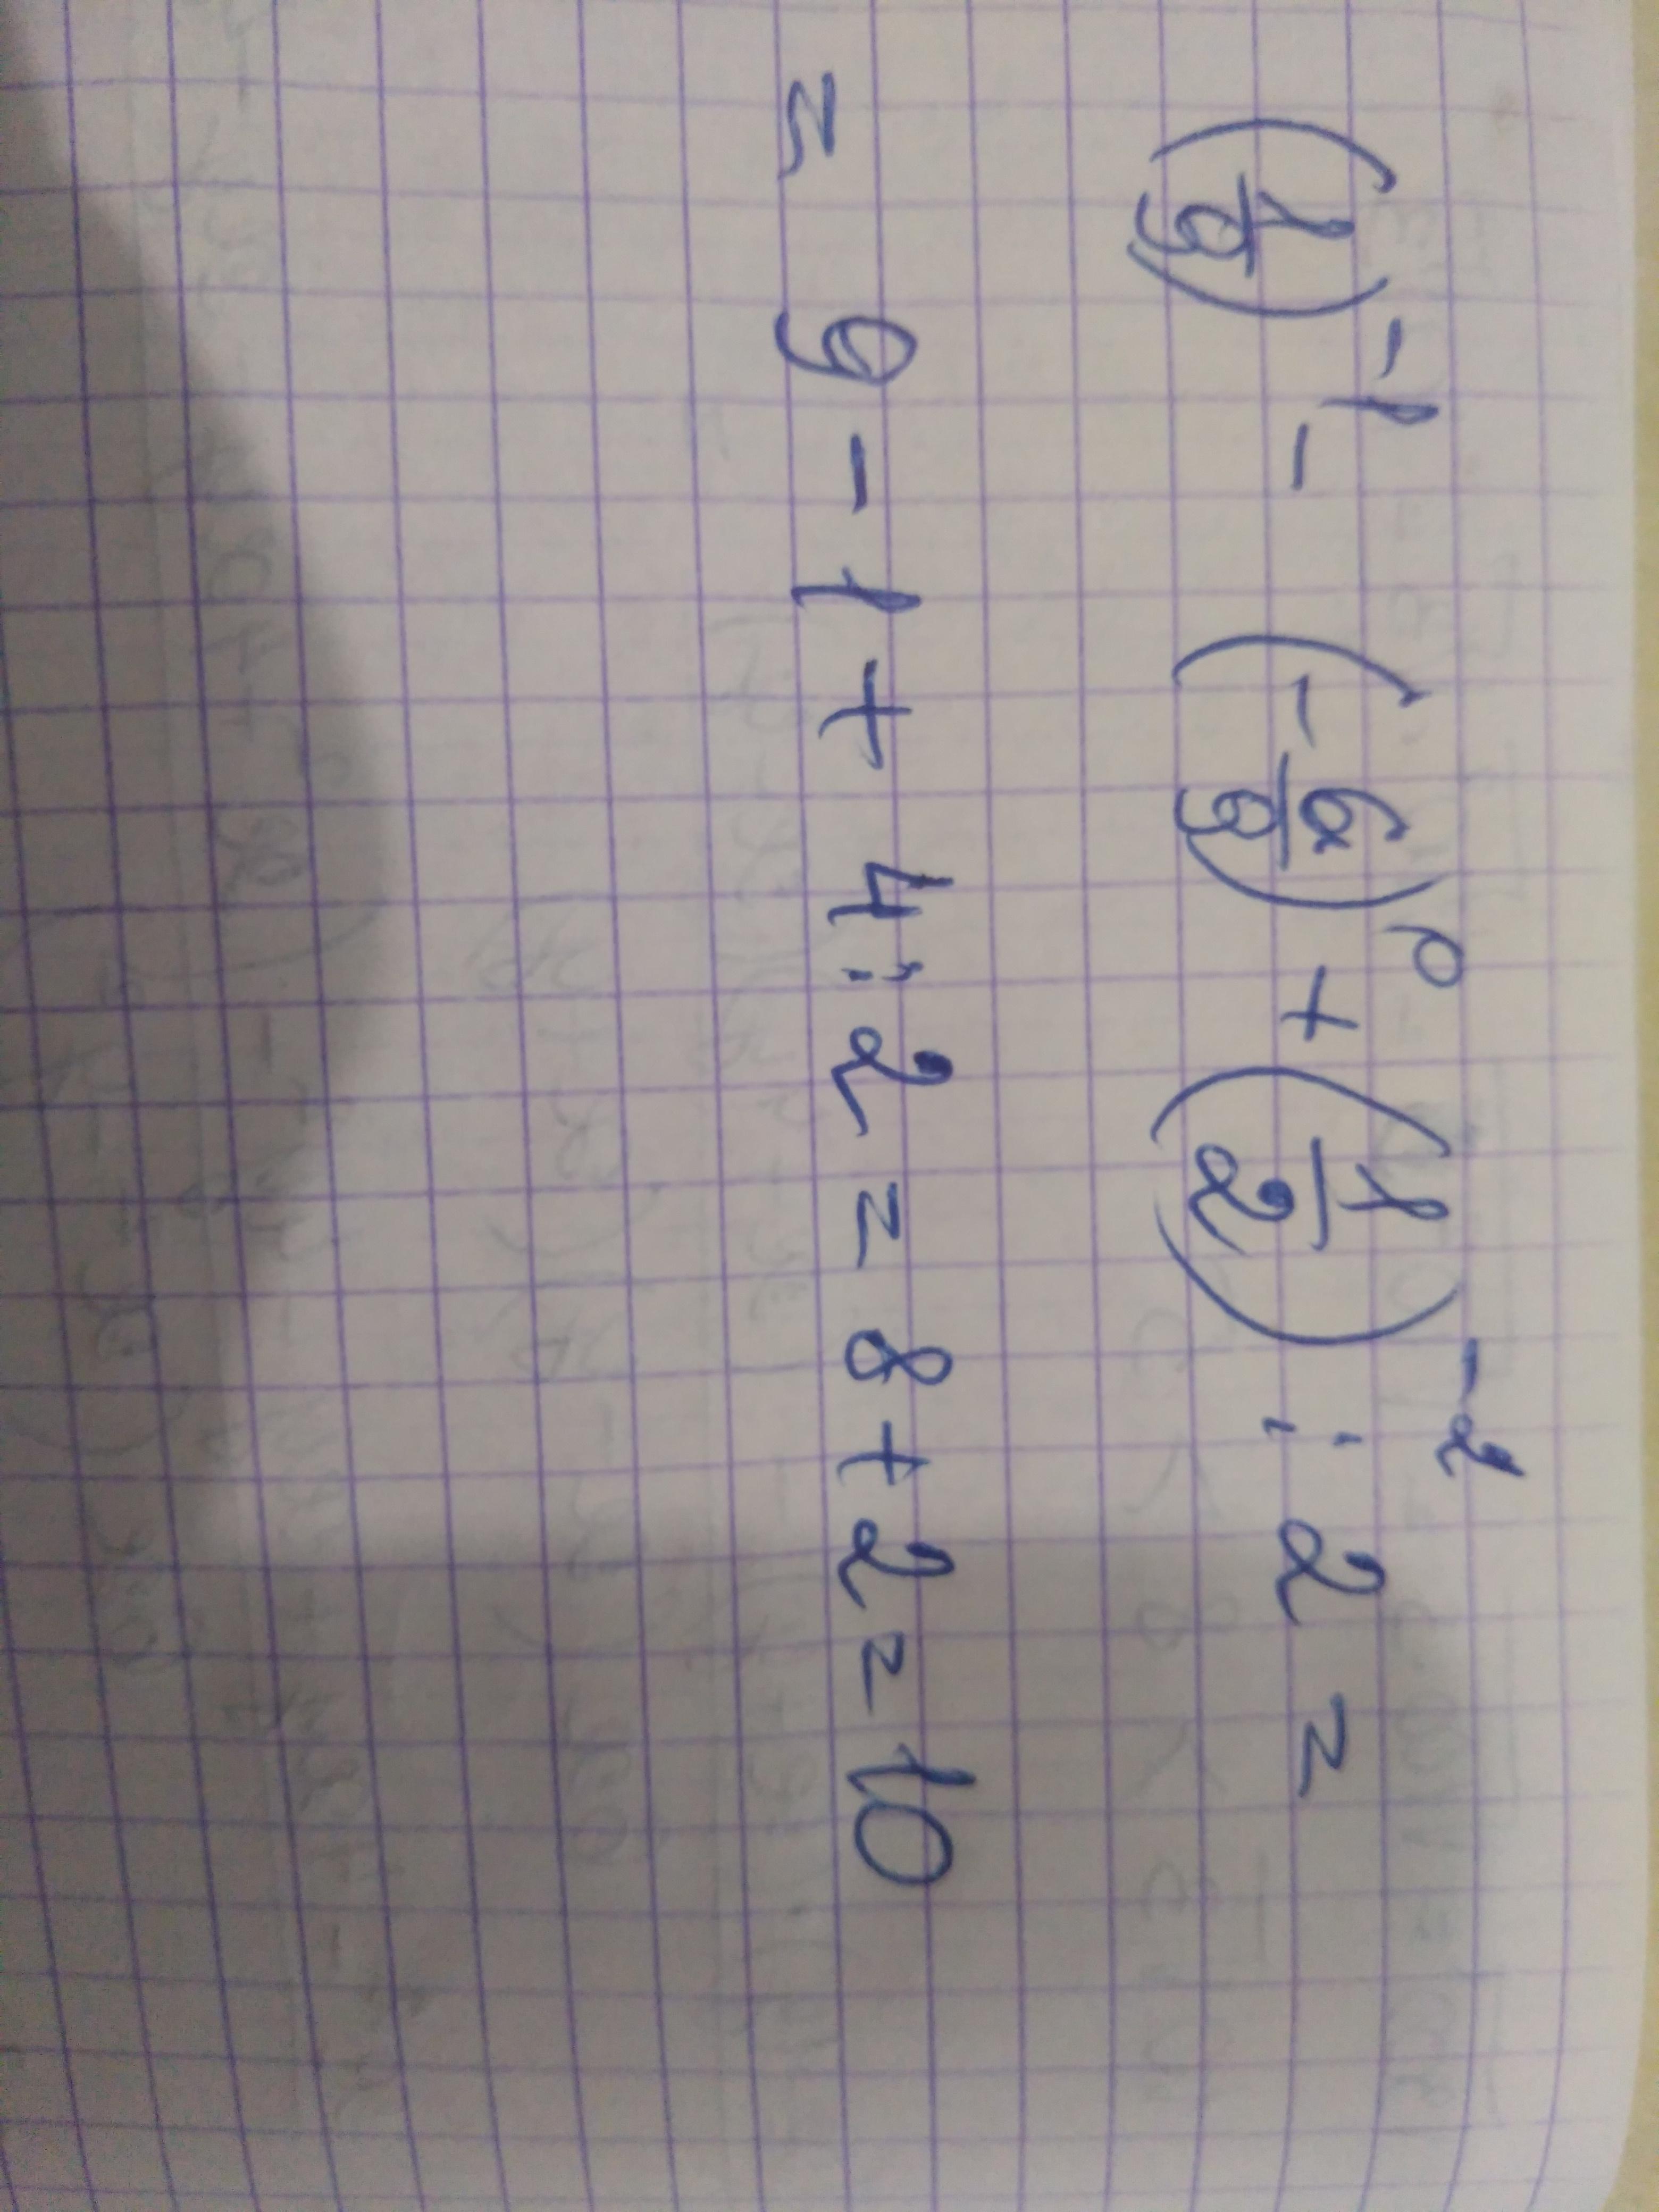 (1/9)^-1 - (-6/9)^0 + (1/2)^-2 : 2 =
= 9 - 1 + 4 : 2 = 8 + 2 = 10